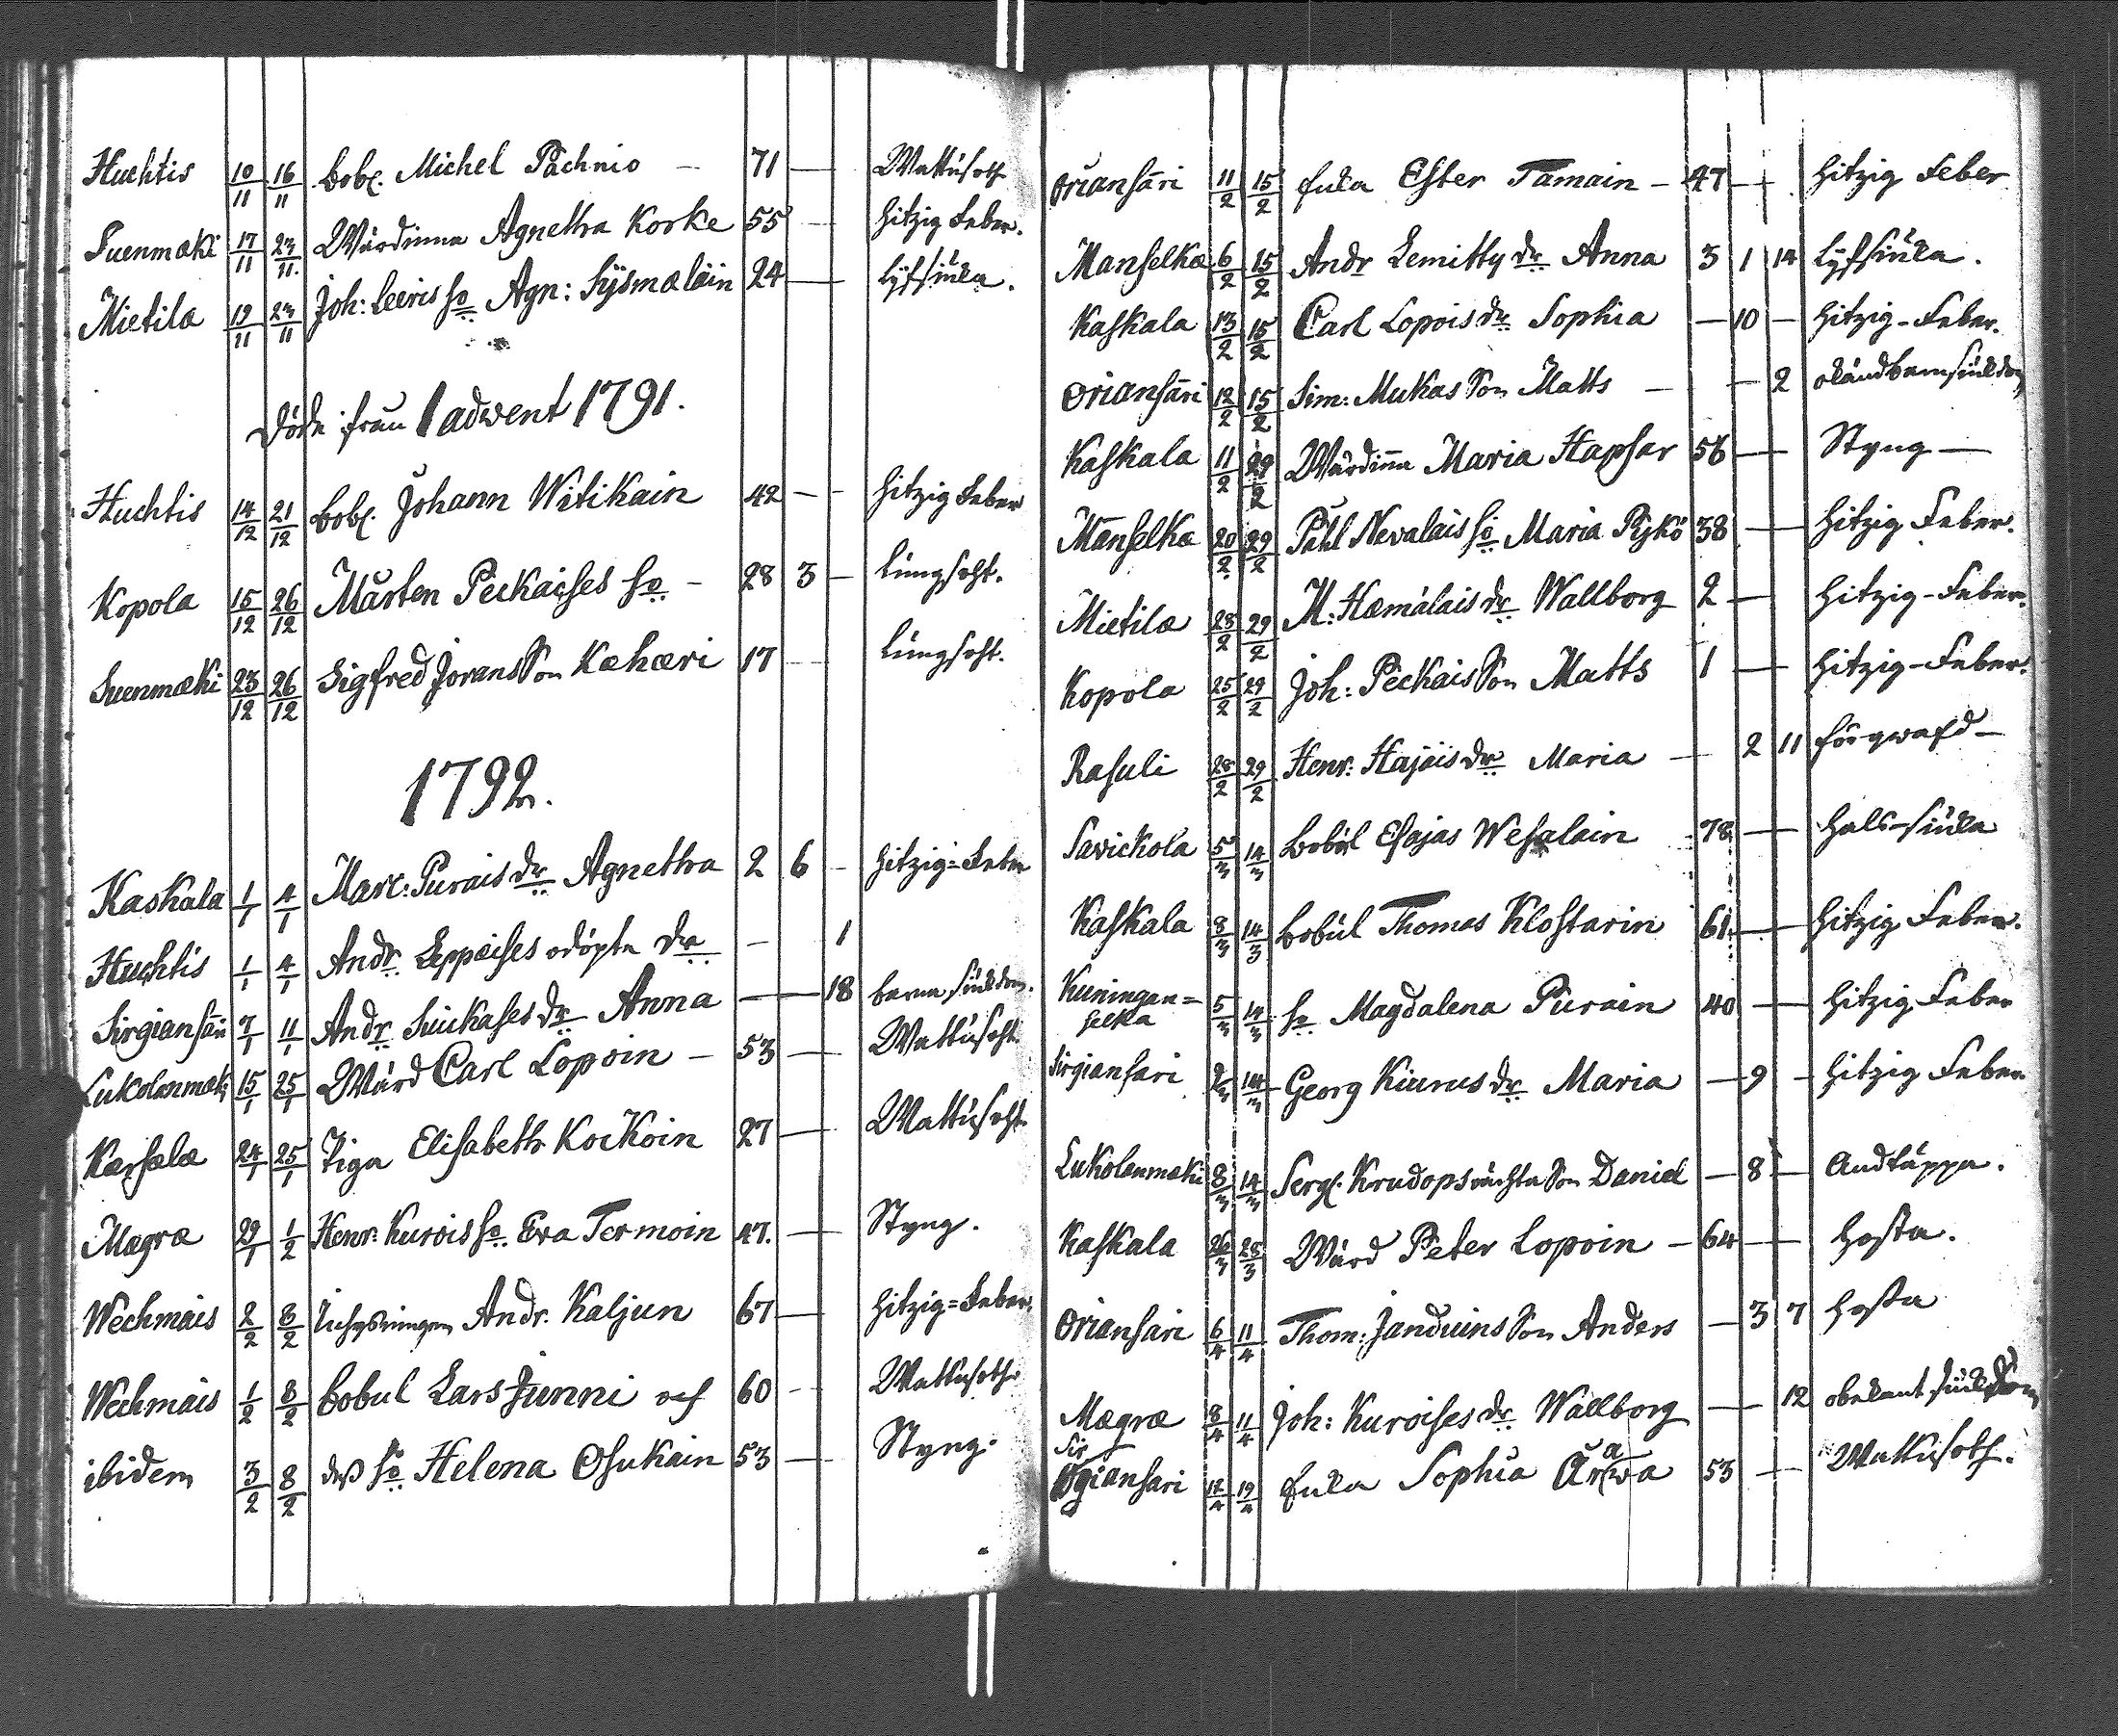 Huchtis 10/11 16/11 bobl. Michel Pächnio - 71 — Wattusoth
Suenmæki 17/11 23/11. Wärdinna Agnetha Korke 55 — hitzig Feber.
Mietilæ 19/11 23/11 Joh: Leeris ho Agn: Sysmæläin 24 — lyfsiuka.
Döde ifrån 1 advent 1791.
Huchtis 14/12 21/12 bobl. Johann Witikain 42 - - hitzig Feber
Kopola 15/12 26/12 Mårten Peckaises ho - 28 3 — lungsoht.
Suenmæki 23/12 26/12 Sigfred Jorans Son Kæhæri 17 — lungsoht.
1792.
Kaskala 1/1 4/1 Marc: Purais dr Agnetha 2 6 - hitzig=Feber
Huchtis 1/1 4/1 Andr. Leppäises odöpta dr - 1
Sirgiansäri 7/1 11/1 Andr. Suikases dr Anna — 18 barna siukdom.
Lukolanmæki 15/1 25/1 Wärd Carl Lopoin - 53 — Wattusoht
Kærsælæ 24/1 25/1 Piga Elisabeth Kockoin 27 — Wattusoht
Mægræ 29/1 1/2 Henr: Kurois ho Eva Termoin 47. — Styng.
Wechmais 2/2 8/2 Andr. Kaljun 67 — hitzig=Feber.
Wechmais 1/2 8/2 bobul Lars Junni och 60 - - Wattusoth
ibidem 3/2 8/2 dess ho Helena Osukain 53 — Styng.
Oriansäri 11/2 15/2 Enka Ester Tamain - 47 — hitzig Feber
Manselkæ 6/2 15/2 Andr Lemitty dr Anna 3 1 14 lyfsiuka.
Kaskala 13/2 15/2 Carl Lopois dr Sophia — 10 — hitzig-Feber.
Oriansäri 12/2 15/2 Sim: Mukas Son Matts — — 2 okänd barnsiukdom
Kaskala 11/2 29/2 Wärdinna Maria Hapsar 56 — Styng —
Mänselkæ 20/2 29/2 Påhl Nevalais ho Maria Pykö 38 — hitzig Feber.
Mietilæ 28/2 29/2 M: Hæmälais dr Wallborg 2 — hitzig-Feber.
Kopola 25/2 29/2 Joh: Peckais Son Matts 1 — hitzig-Feber.
Rasuli 28/2 29/2 Henr: Hajöis dr Maria — 2 11 förqwafd —
Savickola 5/3 14/3 bobul Esajas Wesalain 78 — hals-siuka
Kaskala 8/3 14/3 bobul Thomas Klostarin 61 — hitzig Feber.
Kuningan=
selkæ 5/3 14/3 ho Magdalena Purain 40 — hitzig Feber
Sirgiansari 2/3 14/3 Georg Kiurus dr Maria — 9 — hitzig Feber
Lukolanmæki 8/3 14/3 Serg. Krudopswächta Son Daniel — 8 — Andtäppa.
Kaskala 26/3 28/3 Wärd Peter Lopoin — 64 — hosta.
Oriansari 6/4 11/4 Thom: Janduins Son Anders — 3 7 hosta
Mægræ 8/4 11/4 Joh: Kuroises dr Wallborg — 12 obekant siukdom
Sirgiansari 17/4 19/4 Enka Sophia 53 — Wattusoth.